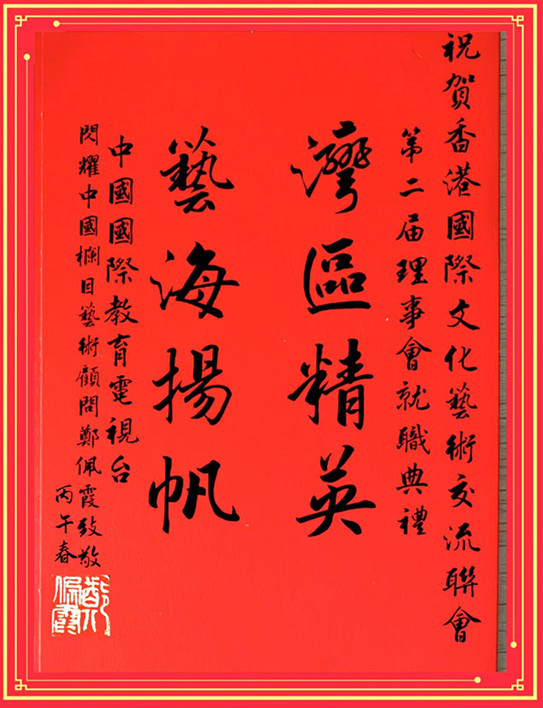 祝賀香港國際文化藝術交流聯會
第二届理事會就職典禮
灣區精英
藝海揚帆
中國國際教育電視台
閃耀中國欄目藝術顧問鄭佩霞致敬
丙午春
鄭佩霞